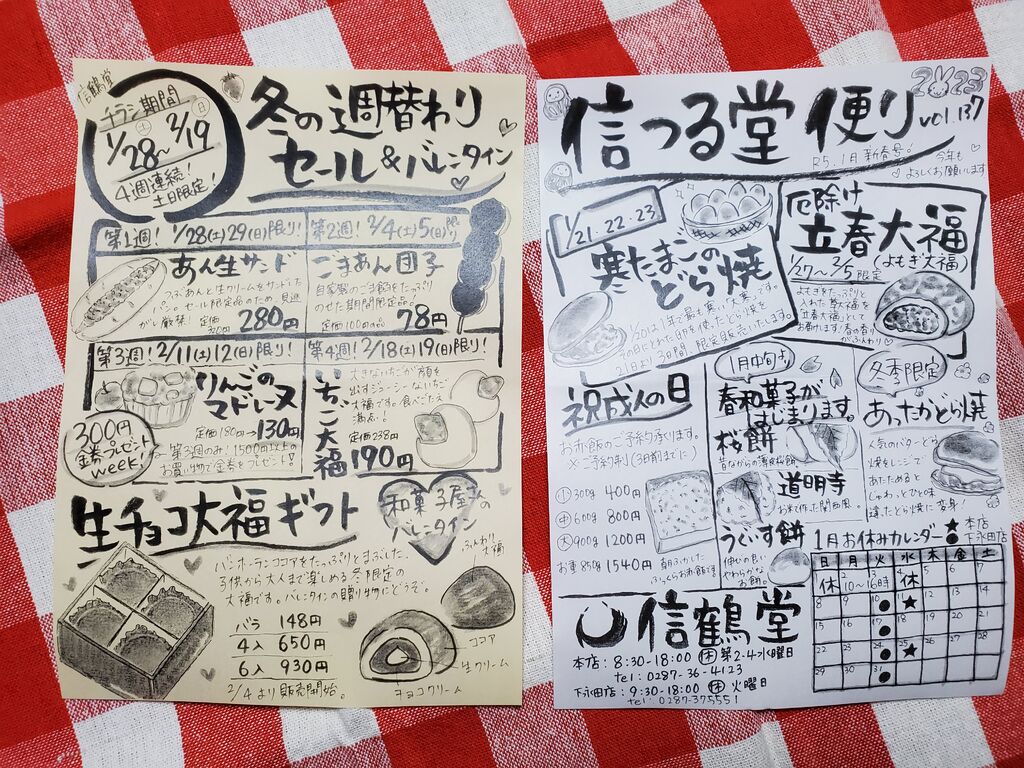 信鶴堂
チラシ期間
1/28(土)〜2/19(日)
4週連続!
土日限定!
冬の週替わり
セール&バレンタイン
第1週! 1/28(土)29(日)限り!
あん生サンド
つぶあんと生クリームをサンドした
パン。セール限定品のため、見逃
がし厳禁! 定価
280円
第2週! 2/4(土)5(日)限り!
ごまあん団子
自家製のごま餡をたっぷり
のせた期間限定品。
定価100円の品 78円
第3週! 2/11(土)12(日)限り!
りんごの
マドレーヌ
定価180円→130円
300円
金券プレゼント
week!
第3週のみ! 1500円以上の
お買い物で金券をプレゼント!
第4週! 2/18(土)19(日)限り!
いちご大福
大きないちごが顔を
出すジューシーないちご
大福です。食べごたえ
満点!
定価238円
190円
生チョコ大福ギフト
和菓子屋さん
のバレンタイン
バンホーテンココアをたっぷりとまぶした、
子供から大人まで楽しめる冬限定の
大福です。バレンタインの贈り物にどうぞ。
バラ 148円
4入 650円
6入 930円
2/4より販売開始。
ふんわり大福
ココア
生クリーム
チョコクリーム
信つる堂便り
vol.137
2023
R5.1月新春号。
今年も
よろしくお願いします
1/21.22.23
寒たまごの
どら焼
1/20は1年で最も寒い"大寒"です。
その日にとれた卵を使ったどら焼を
21日より3日間、限定販売いたします。
厄除け
立春大福
(よもぎ大福)
1/27〜2/5限定
よもぎをたっぷりと
入れた草大福を
"立春大福"として
お届けします!春の香り
がふんわり
祝成人の日
お赤飯のご予約承ります。
※ご予約制(3日前までに)
小 300g 400円
中 600g 800円
大 900g 1200円
お重 850g 1540円
ふっくらお赤飯です
1月中旬より
春和菓子が
はじまります。
桜餅
昔ながらの薄皮桜餅
道明寺
お米で作った関西風。
うぐいす餅
伸びの良い
やわらかな
お餅。
冬季限定
あったかどら焼
人気のバターどら
焼をレンジで
あたためると
じゅわっとひと味
違ったどら焼に変身!
1月お休みカレンダー ★本店 ●下永田店
日 月 火 水 木 金 土
休 2 3 4 5 6 7
10〜16時 休
8 9 10 11 12 13 14
● ★
15 16 17 18 19 20 21
●
22 23 24 25 26 27 28
● ★
29 30 31
●
信鶴堂
本店: 8:30-18:00 休 第2.4水曜日
tel: 0287-36-4123
下永田店: 9:30-18:00 休 火曜日
tel: 0287-375551